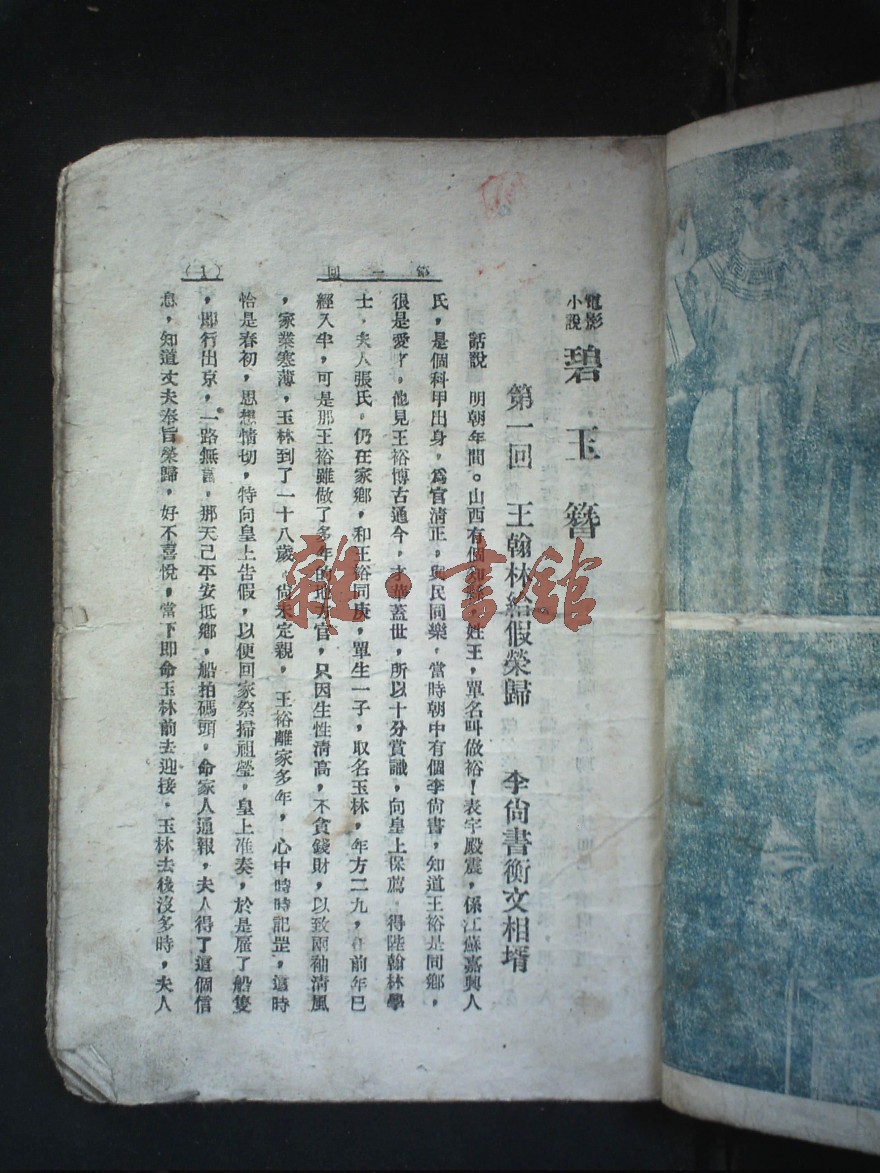 電影小說 碧玉簪
第一回 王翰林給假榮歸 李尙書衡文相壻
話說 明朝年間。山西有個知 姓王，單名叫做裕！表字殿震，係江蘇嘉興人
氏，是個科甲出身，爲官淸正，與民同樂，當時朝中有個李尙書，知道王裕是同鄉，
很是愛才，他見王裕博古通今，才華蓋世，所以十分賞識，向皇上保薦 得陞翰林學
士，夫人張氏。仍在家鄉，和王裕同庚，單生一子，取名玉林，年方二九，在前年已
經入泮，可是那王裕雖做了多年的地方官，只因生性淸高，不貪錢財，以致兩袖淸風
，家業寒薄，玉林到了一十八歲，尙未定親， 王裕離家多年，心中時時記罣，這時
恰是春初，思想情切，特向皇上告假，以便回家祭掃祖瑩。皇上准奏，於是雇了船隻
，即行出京，一路無言，那天己平安抵鄉，船拍碼頭，命家人通報，夫人得了這個信
息，知道丈夫奉旨榮歸，好不喜悅，當下即命玉林前去迎接，玉林去後沒多時，夫人
第一回
(1)
雜·書館